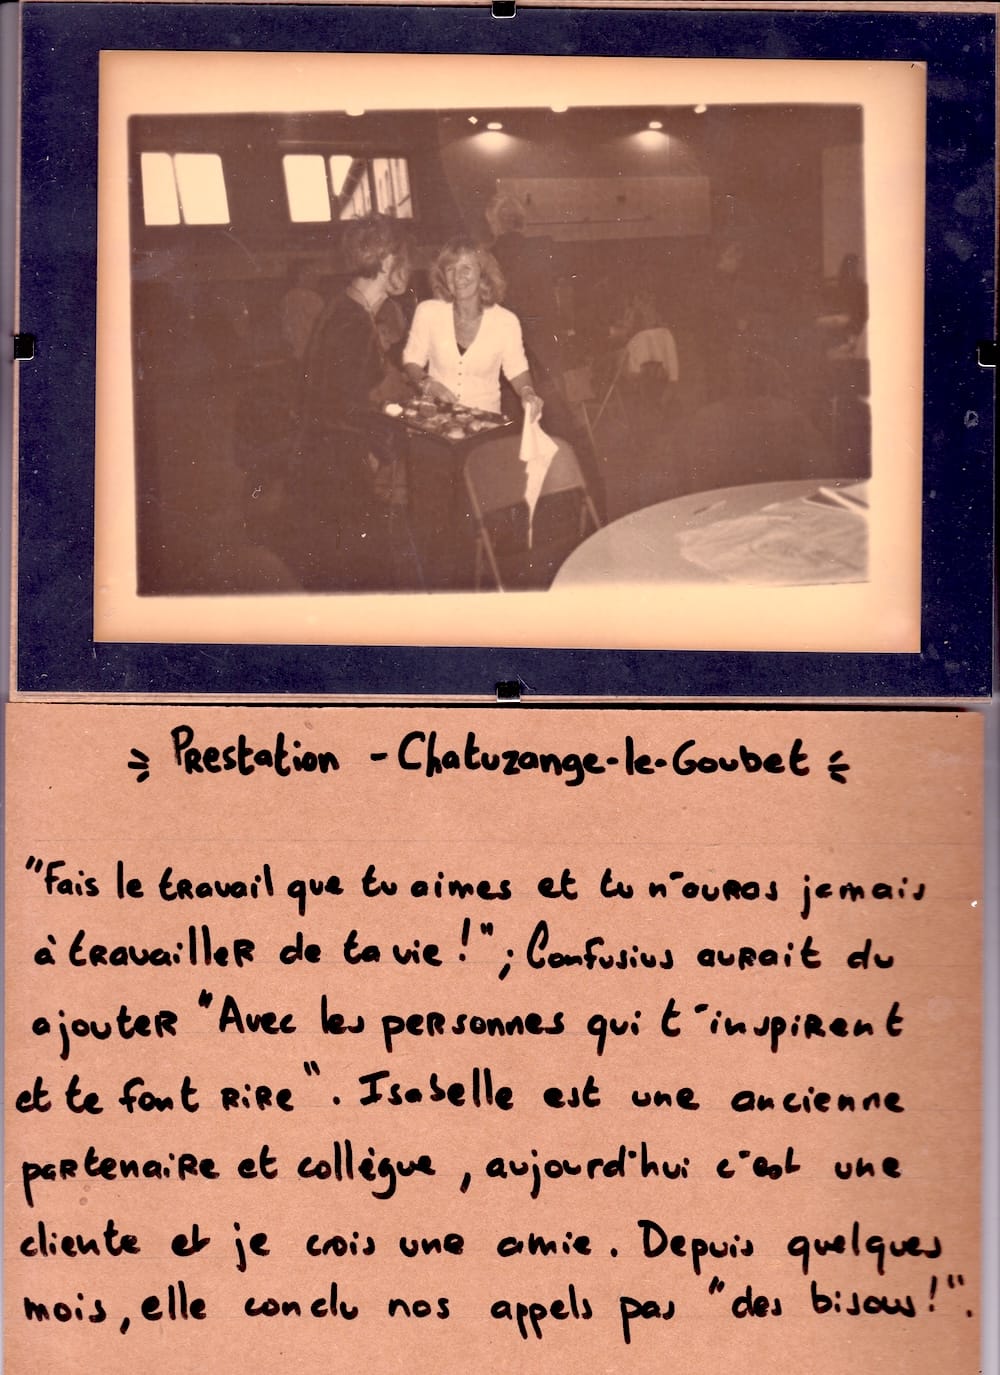 Prestation - Chatuzange-le-Goubet
"Fais le travail que tu aimes et tu n'auras jamais
à travailler de ta vie !" ; Confusius aurait du
ajouter "Avec les personnes qui t'inspirent
et te font rire". Isabelle est une ancienne
partenaire et collègue, aujourd'hui c'est une
cliente et je crois une amie. Depuis quelques
mois, elle conclu nos appels pas "des bisous !".